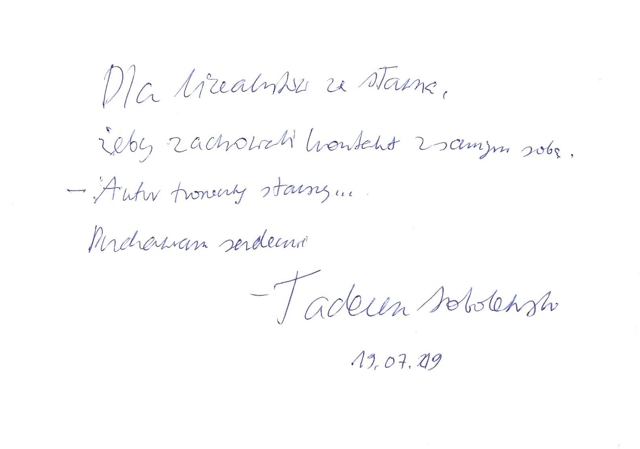 Dla licealistów ze
żeby zachowali kontakt z samym sobą.
— Autor
Pozdrawiam serdecznie
— Tadeusz Sobolewski
19.07.19